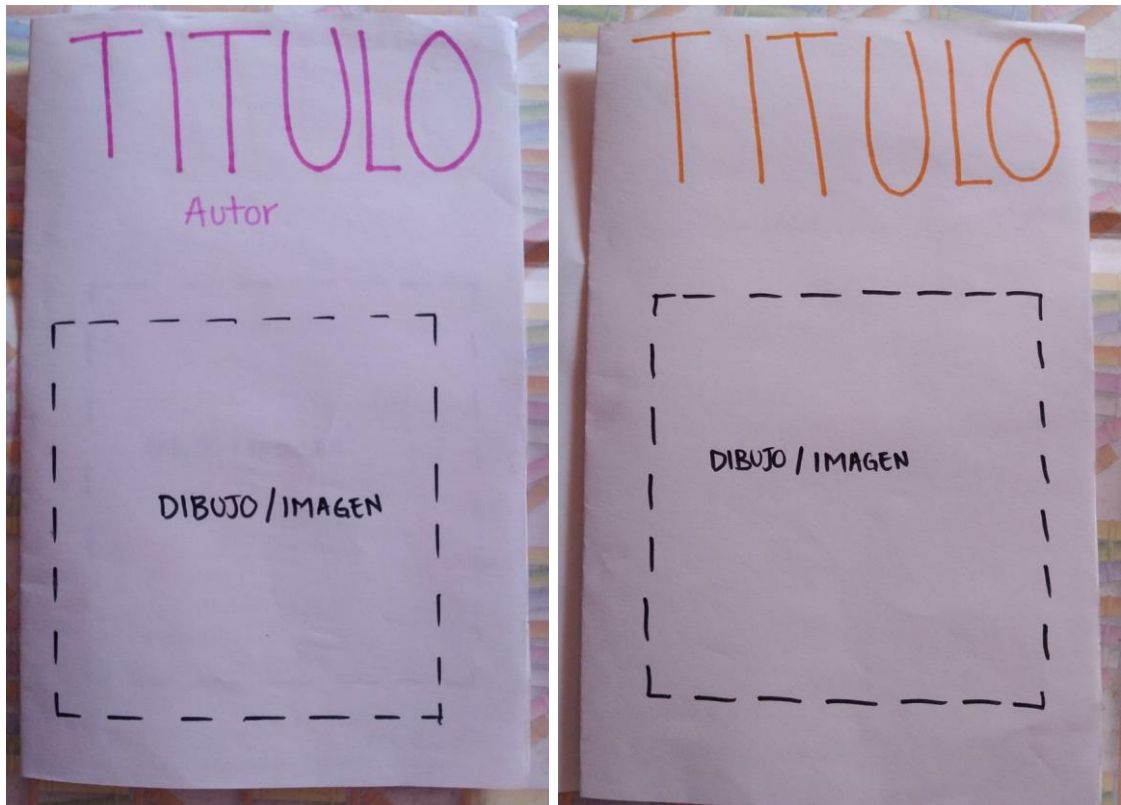 TITULO
Autor
DIBUJO / IMAGEN
TITULO
DIBUJO / IMAGEN